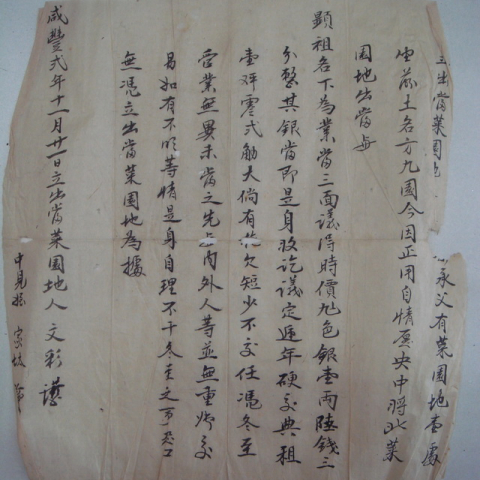 立出當菜園地
承父有菜園地壹處
坐落土名方九園今因正用自情愿央中將此菜
園地出當與
顯祖名下為業當三面議得時價九色銀壹兩陸錢三
分整其銀當即是身收訖議定遞年硬交典租
壹秤零弍觔大倘有欠短少不交任憑冬至
營業無異未當之先內外人等並無重押交
易如有不明等情是身自理不干冬至之事恐口
無憑立出當菜園地為據
咸豐弍年十一月廿一日立出當菜園地人 文彩
中見 家